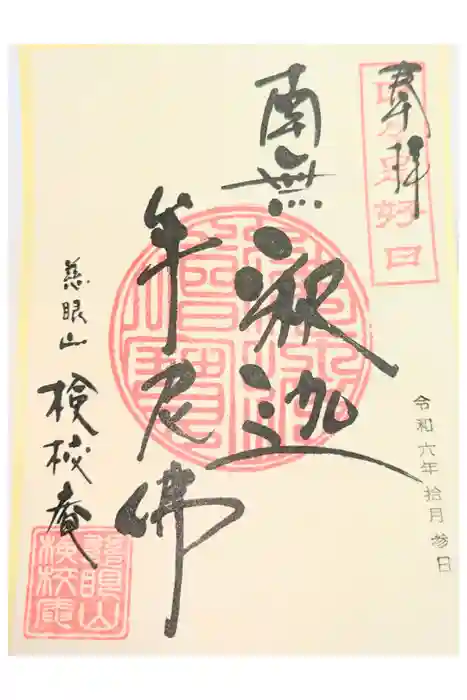 奉拝
日々是好日
令和六年拾月参日
南無釈迦
牟尼佛
慈眼山
検校庵
慈眼山
検校庵